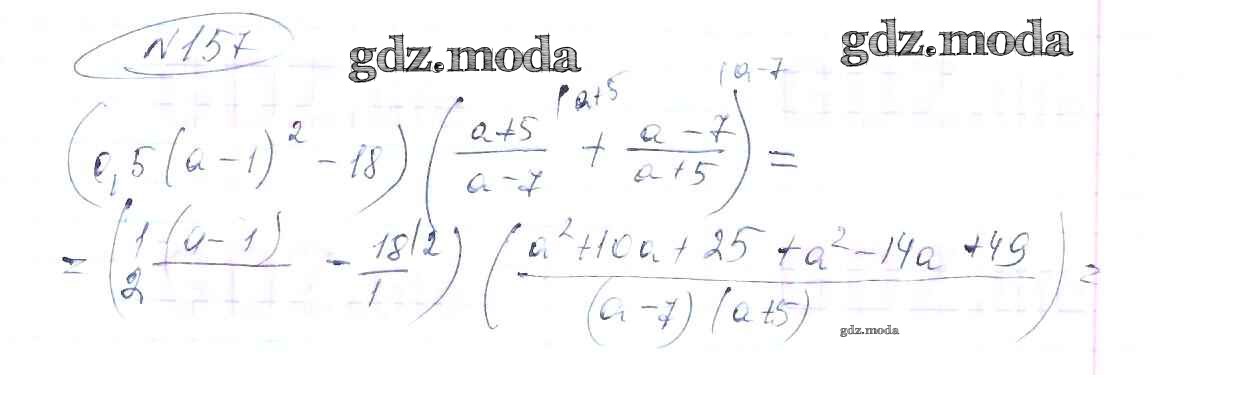 №157
gdz.moda
gdz.moda
(0,5(a-1)² - 18) ( a+5/a-7 |a+5 + a-7/a+5 |a-7 ) =
= ( 1(a-1)/2 - 18/1 |2 ) ( a²+10a+25+a²-14a+49 / (a-7)(a+5) ) =
gdz.moda